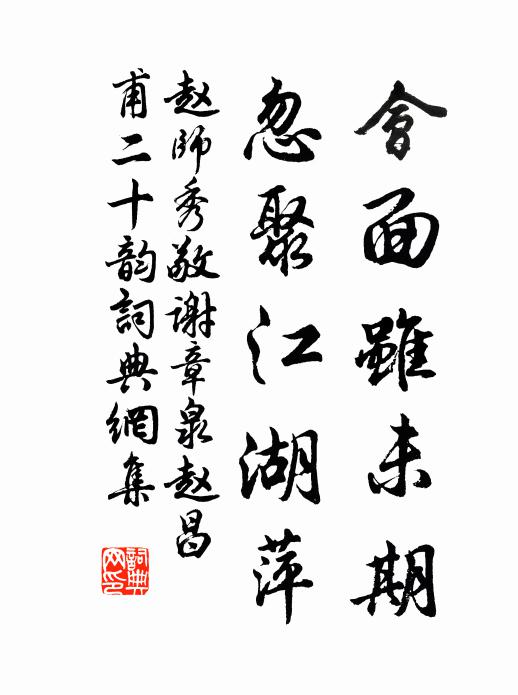 會面雖未期
忽聚江湖萍
赵師秀敬谢章泉赵昌
甫二十韵詞典網集
詞典
网印